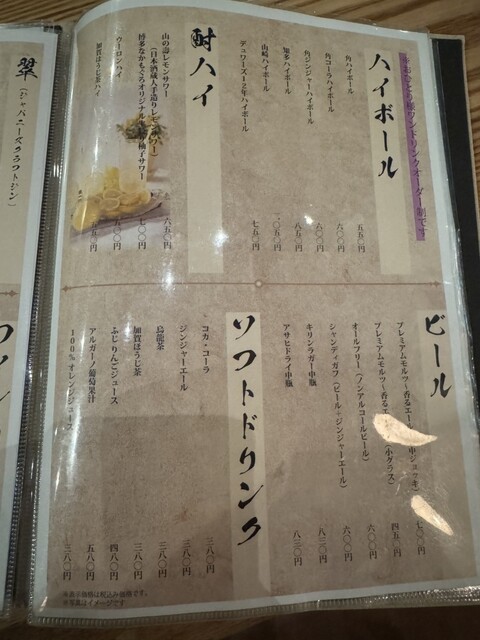 ※お一人様ワンドリンクオーダー制です
ハイボール
角ハイボール 五五〇円
角コーラハイボール 六〇〇円
角ジンジャーハイボール 六〇〇円
知多ハイボール 八五〇円
山崎ハイボール 一、〇五〇円
デュワーズ12年ハイボール 七五〇円
酎ハイ
山の壽レモンサワー
(日本酒蔵人手造りレモンサワー) 六五〇円
博多なかもぐろオリジナル 柚子サワー 七〇〇円
ウーロンハイ
加賀ほうじ茶ハイ
ビール
プレミアムモルツ〜香るエール 中ジョッキ) 七〇〇円
プレミアムモルツ〜香るエール (小グラス) 四五〇円
オールフリー(ノンアルコールビール) 六〇〇円
シャンディガフ(ビール+ジンジャーエール) 六〇〇円
キリンラガー中瓶 八三〇円
アサヒドライ中瓶 八三〇円
ソフトドリンク
コカ・コーラ 三八〇円
ジンジャーエール 三八〇円
烏龍茶 三八〇円
加賀ほうじ茶 三八〇円
ふじりんごジュース 四八〇円
アルガーノ葡萄果汁 五八〇円
100%オレンジジュース 三八〇円
※表示価格は税込み価格です。
※写真はイメージです
翠
(ジャパニーズクラフトジン)